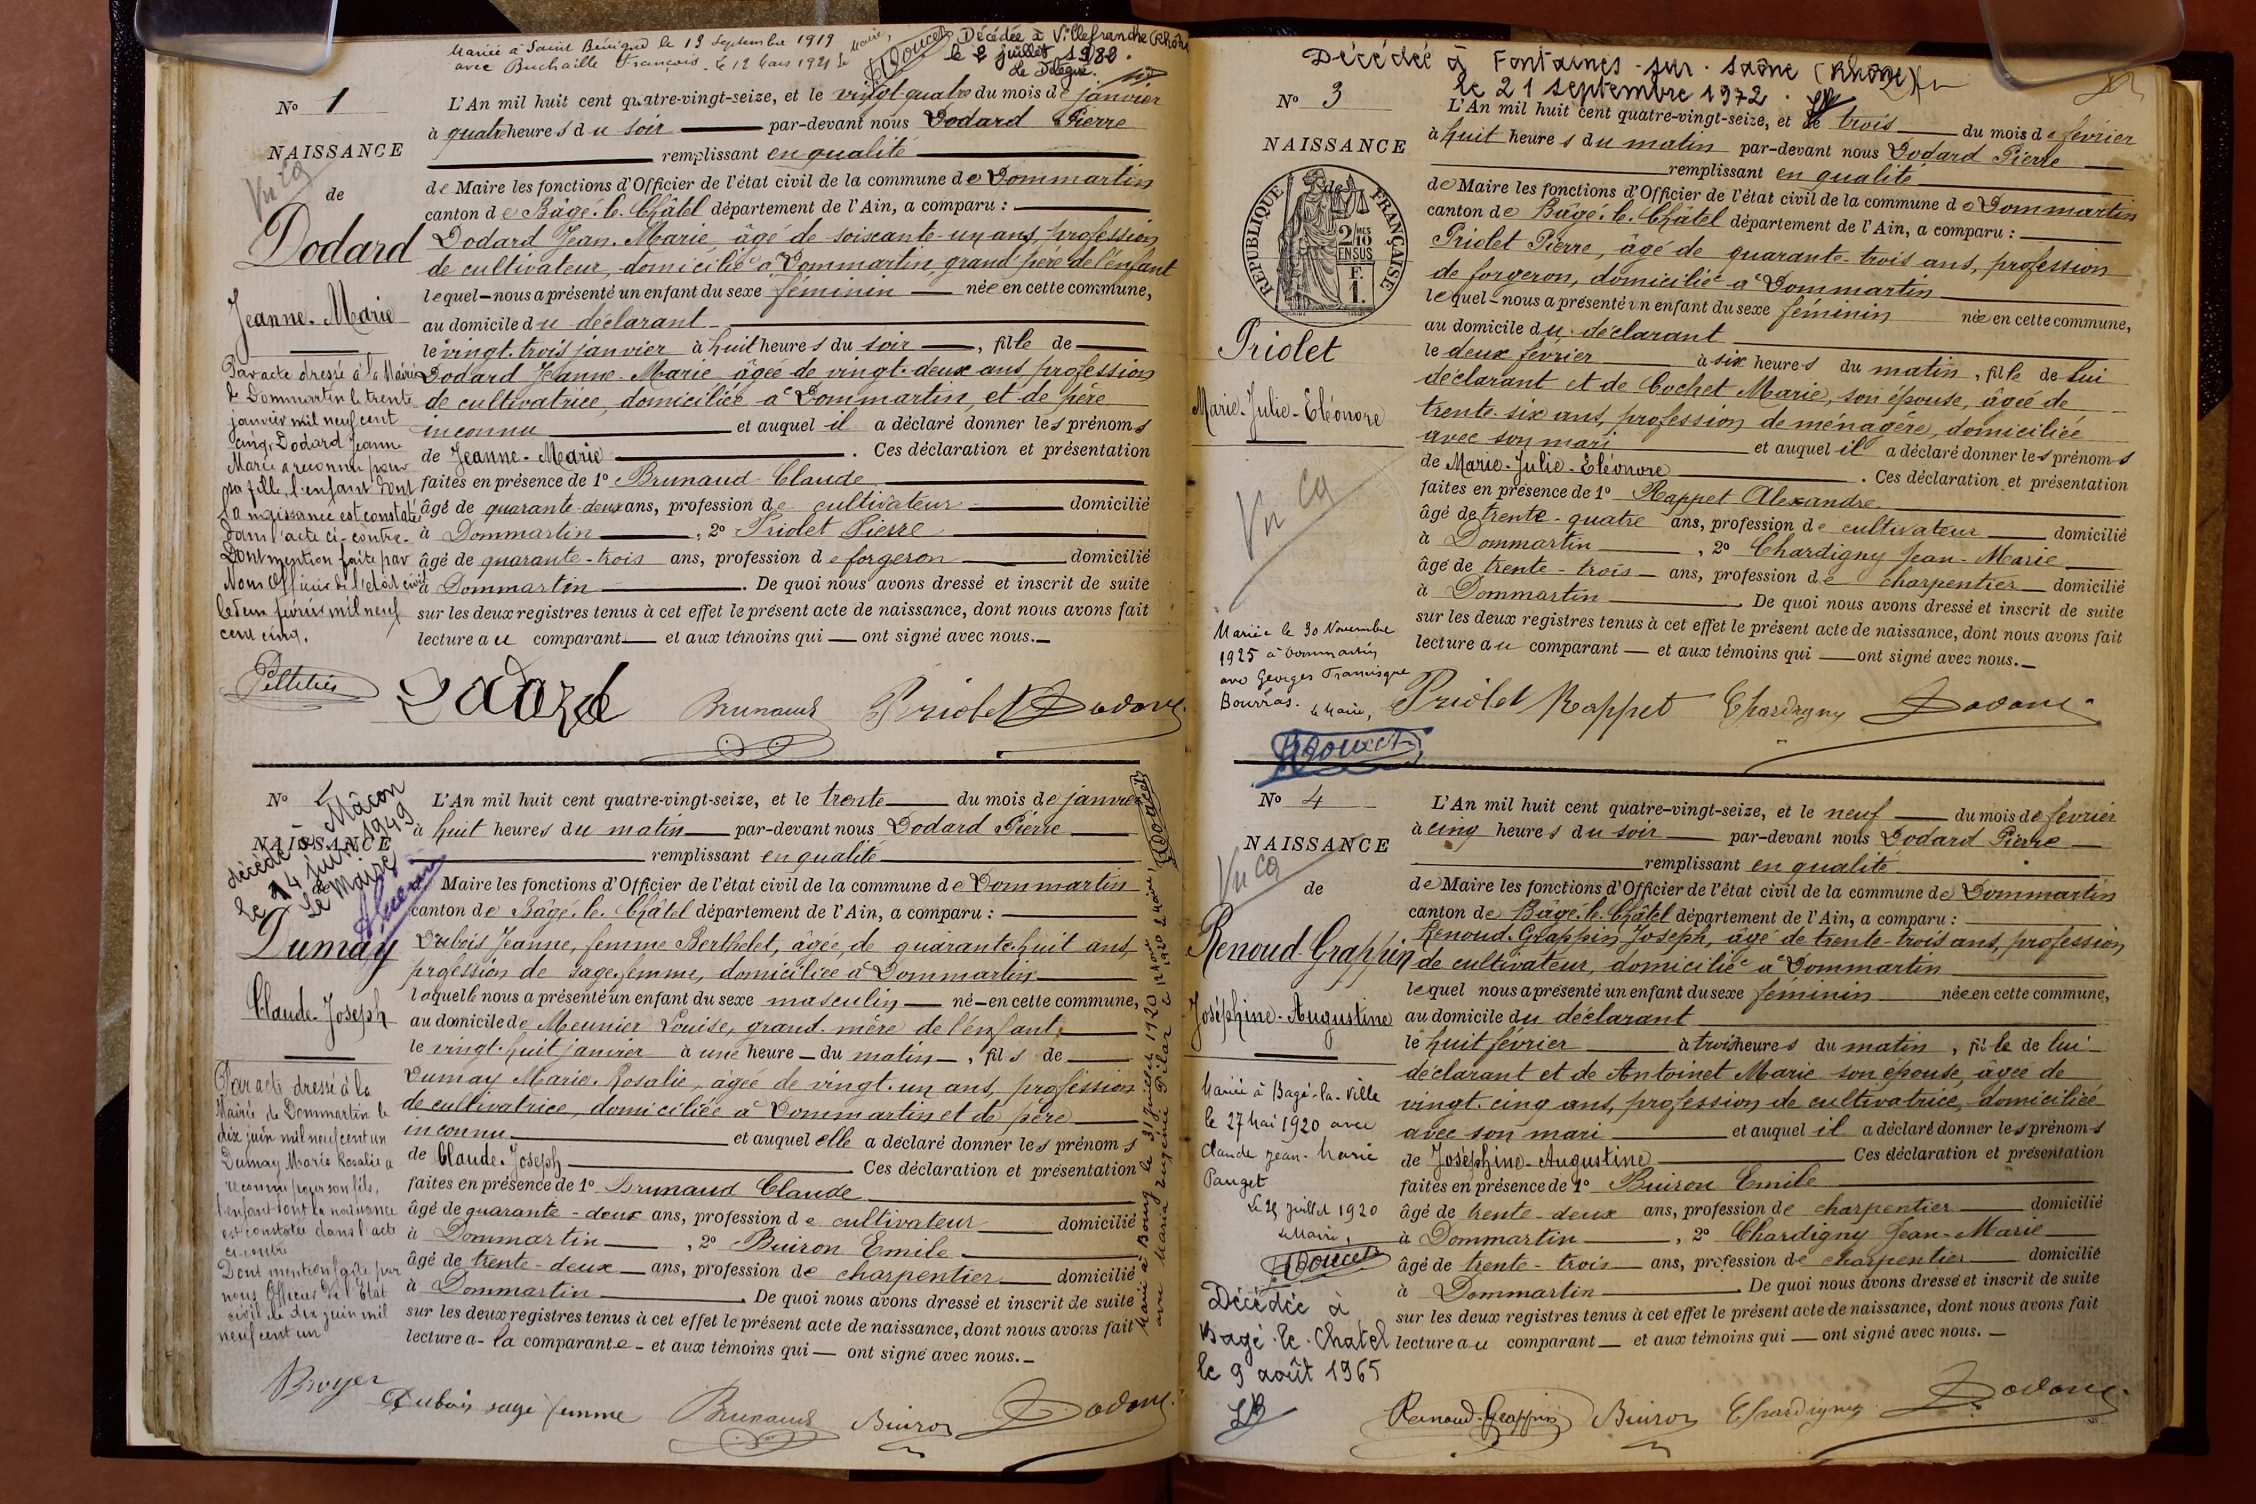 Mariée à Saint Bénigne le 13 Septembre 1919
avec Buchaille François. Le 12 Mars 1921
Doucet
Décédée à Villefranche (Rhône)
le 2 juillet 1980.
Le Délégué.
N° 1
NAISSANCE
Vu
de
Dodard
Jeanne-Marie
Par acte dressé à la Mairie
de Dommartin le trente
janvier mil neuf cent
cinq, Dodard Jeanne
Marie a reconnu pour
sa fille, l'enfant dont
la naissance est constatée
dans l'acte ci-contre.
Dont mention faite par
Nous Officier de l'état civil
février mil neuf
cent cinq.
Pelletier
L'An mil huit cent quatre-vingt-seize, et le vingt quatre du mois de janvier
à quatre heures du soir par-devant nous Dodard Pierre
remplissant en qualité
de Maire les fonctions d'Officier de l'état civil de la commune de Dommartin
canton de Bâgé-le-Châtel département de l'Ain, a comparu :
Dodard Jean-Marie, âgé de soixante-un ans, profession
de cultivateur, domicilié à Dommartin, grand'père de l'enfant
lequel nous a présenté un enfant du sexe féminin née en cette commune,
au domicile du déclarant
le vingt-trois janvier à huit heures du soir, fille de
Dodard Jeanne-Marie âgée de vingt-deux ans, profession
de cultivatrice, domiciliée à Dommartin, et de père
inconnu et auquel il a déclaré donner les prénoms
de Jeanne-Marie. Ces déclaration et présentation
faites en présence de 1° Brunaud Claude
âgé de quarante-deux ans, profession de cultivateur domicilié
à Dommartin, 2° Priolet Pierre
âgé de quarante-trois ans, profession de forgeron domicilié
à Dommartin. De quoi nous avons dressé et inscrit de suite
sur les deux registres tenus à cet effet le présent acte de naissance, dont nous avons fait
lecture au comparant et aux témoins qui ont signé avec nous.
Dodard Brunaud Priolet Dodard
N° 2
NAISSANCE
décédé à Mâcon
le 14 juin 1949
Le Maire
Dumay
Claude-Joseph
Par acte dressé à la
Mairie de Dommartin le
dix juin mil neuf cent un
Dumay Marie Rosalie a
reconnu pour son fils,
l'enfant dont la naissance
est constatée dans l'acte
ci-contre
Dont mention faite par
nous Officier de l'Etat
civil le dix juin mil
neuf cent un
Broyer
L'An mil huit cent quatre-vingt-seize, et le trente du mois de janvier
à huit heures du matin par-devant nous Dodard Pierre
remplissant en qualité
Maire les fonctions d'Officier de l'état civil de la commune de Dommartin
canton de Bâgé-le-Châtel département de l'Ain, a comparu :
Dubois Jeanne, femme Berthelet, âgée, de quarante-huit ans,
profession de sage-femme, domiciliée à Dommartin
laquelle nous a présenté un enfant du sexe masculin né en cette commune,
au domicile de Meunier Louise, grand-mère de l'enfant,
le vingt-huit janvier à une heure du matin, fils de
Dumay Marie-Rosalie, âgée de vingt-un ans, profession
de cultivatrice, domiciliée à Dommartin et de père
inconnu et auquel elle a déclaré donner les prénoms
de Claude-Joseph. Ces déclaration et présentation
faites en présence de 1° Brunaud Claude
âgé de quarante-deux ans, profession de cultivateur domicilié
à Dommartin, 2° Buiron Emile
âgé de trente-deux ans, profession de charpentier domicilié
à Dommartin. De quoi nous avons dressé et inscrit de suite
sur les deux registres tenus à cet effet le présent acte de naissance, dont nous avons fait
lecture a la comparante et aux témoins qui ont signé avec nous.
Marié à Bourg le 31 Juillet 1920
avec Maria Eugénie Pilaz
Doucet
Dubois sage femme Brunaud Buiron Dodard
Décédée à Fontaines-sur-Saône (Rhône)
le 21 septembre 1972.
N° 3
NAISSANCE
de
RÉPUBLIQUE FRANÇAISE
2/10 EN SUS
F. 1.
Priolet
Marie-Julie-Eléonore
Vu
Mariée le 30 Novembre
1925 à Dommartin
avec Georges Francisque
Bourras. Le Maire,
Doucet
L'An mil huit cent quatre-vingt-seize, et le trois du mois de février
à huit heures du matin par-devant nous Dodard Pierre
remplissant en qualité
de Maire les fonctions d'Officier de l'état civil de la commune de Dommartin
canton de Bâgé-le-Châtel département de l'Ain, a comparu :
Priolet Pierre, âgé de quarante-trois ans, profession
de forgeron, domicilié à Dommartin
lequel nous a présenté un enfant du sexe féminin née en cette commune,
au domicile du déclarant
le deux février à six heures du matin, fille de lui
déclarant et de Cochet Marie, son épouse, âgée de
trente-six ans, profession de ménagère, domiciliée
avec son mari et auquel il a déclaré donner les prénoms
de Marie-Julie-Eléonore. Ces déclaration et présentation
faites en présence de 1° Rappet Alexandre
âgé de trente-quatre ans, profession de cultivateur domicilié
à Dommartin, 2° Chardigny Jean-Marie
âgé de trente-trois ans, profession de charpentier domicilié
à Dommartin. De quoi nous avons dressé et inscrit de suite
sur les deux registres tenus à cet effet le présent acte de naissance, dont nous avons fait
lecture au comparant et aux témoins qui ont signé avec nous.
Priolet Rappet Chardigny Dodard
N° 4
NAISSANCE
Vu
de
Renoud-Grappin
Joséphine-Augustine
Mariée à Bagé-la-Ville
le 27 Mai 1920 avec
Claude Jean-Marie
Pauget
Le 25 Juillet 1920
Le Maire,
Doucet
Décédée à
Bagé-le-Chatel
le 9 août 1965
L'An mil huit cent quatre-vingt-seize, et le neuf du mois de février
à cinq heures du soir par-devant nous Dodard Pierre
remplissant en qualité
de Maire les fonctions d'Officier de l'état civil de la commune de Dommartin
canton de Bâgé-le-Châtel département de l'Ain, a comparu :
Renoud-Grappin Joseph, âgé de trente-trois ans, profession
de cultivateur, domicilié à Dommartin
lequel nous a présenté un enfant du sexe féminin née en cette commune,
au domicile du déclarant
le huit février à trois heures du matin, fille de lui
déclarant et de Antoinet Marie son épouse, âgée de
vingt-cinq ans, profession de cultivatrice, domiciliée
avec son mari et auquel il a déclaré donner les prénoms
de Joséphine-Augustine Ces déclaration et présentation
faites en présence de 1° Buiron Emile
âgé de trente-deux ans, profession de charpentier domicilié
à Dommartin, 2° Chardigny Jean-Marie
âgé de trente-trois ans, profession de charpentier domicilié
à Dommartin. De quoi nous avons dressé et inscrit de suite
sur les deux registres tenus à cet effet le présent acte de naissance, dont nous avons fait
lecture au comparant et aux témoins qui ont signé avec nous.
Renoud-Grappin Buiron Chardigny Dodard